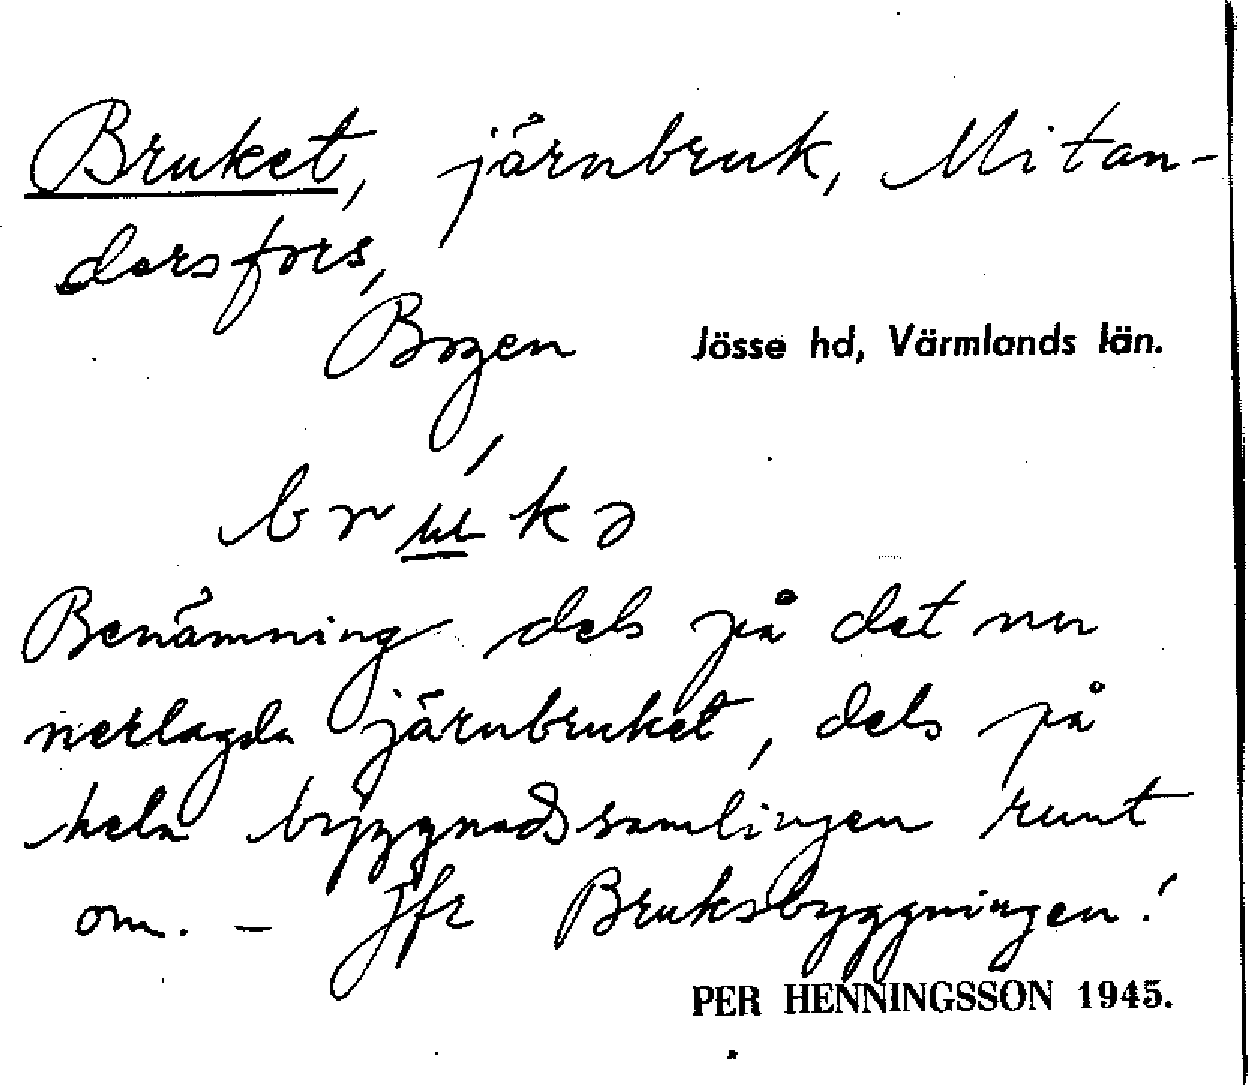 Bruket, järnbruk, Mitan-
dersfors,
Bogen Jösse hd, Värmlands län.
brúkə
Benämning dels på det nu
nerlagda järnbruket, dels på
hela byggnadssamlingen runt
om. – Jfr Bruksbyggningen!
PER HENNINGSSON 1945.